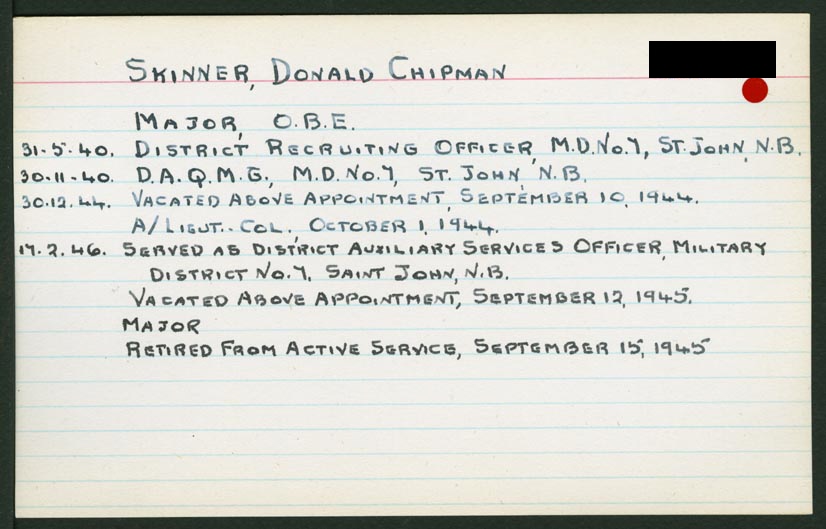 SKINNER, DONALD CHIPMAN
MAJOR, O.B.E.
31-5-40. DISTRICT RECRUITING OFFICER, M.D. No.7, ST. JOHN, N.B.
30-11-40. D.A.Q.M.G., M.D. No.7, ST. JOHN, N.B.
30.12.44. VACATED ABOVE APPOINTMENT, SEPTEMBER 10, 1944.
A/LIEUT.-COL., OCTOBER 1, 1944.
17.2.46. SERVED AS DISTRICT AUXILIARY SERVICES OFFICER, MILITARY
DISTRICT No.7, SAINT JOHN, N.B.
VACATED ABOVE APPOINTMENT, SEPTEMBER 12, 1945.
MAJOR
RETIRED FROM ACTIVE SERVICE, SEPTEMBER 15, 1945